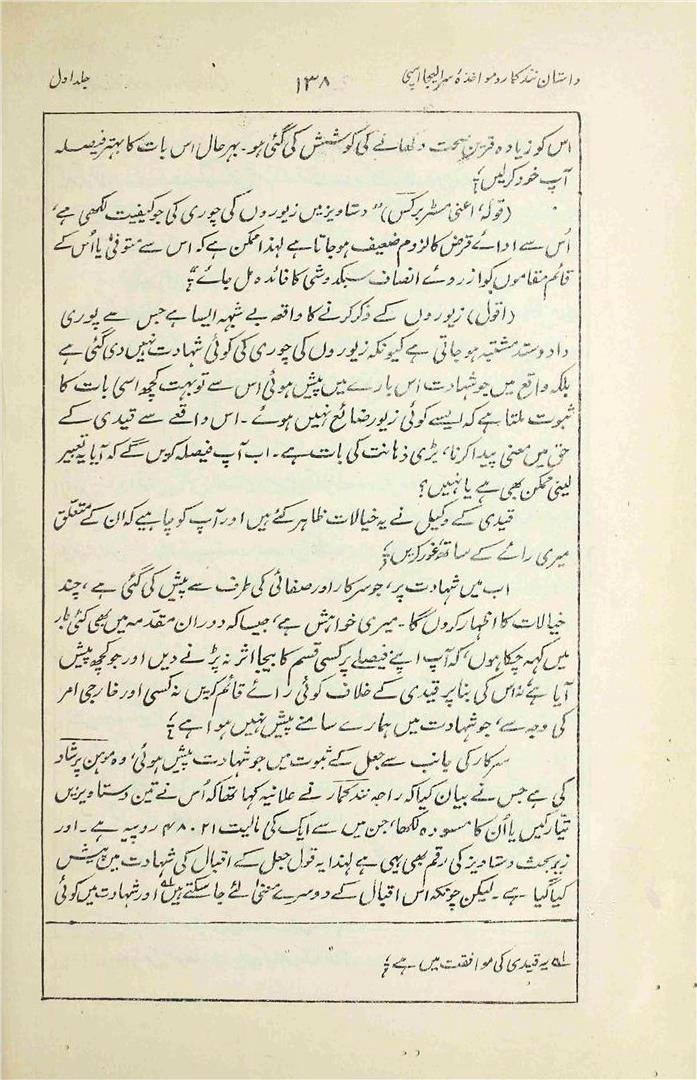 داستان نند کمار و مواخذۂ سر الیجا امپی ۱۳۸ جلد اول
اس کو زیادہ قرین صحت دکھانے کی کوشش کی گئی ہو۔ بہرحال اس بات کا بہتر فیصلہ
آپ خود کرلیں؛
(قولہٗ، اعنی مسٹر برکس) "دستاویز میں زیوروں کی چوری کی جو کیفیت لکھی ہے،
اُس سے ادائے قرض کا لزوم ضعیف ہو جاتا ہے لہذا ممکن ہے کہ اس سے متوفیٰ یا اُس کے
قائم مقاموں کو از روئے انصاف سبکدوشی کا فائدہ مل جائے"؛
(اقول) زیوروں کے ذکر کرنے کا واقعہ بے شبہہ ایسا ہے جس سے پوری
داد وستد مشتبہ ہو جاتی ہے کیونکہ زیوروں کی چوری کی کوئی شہادت نہیں دی گئی ہے
بلکہ واقع میں جو شہادت اس بارے میں پیش ہوئی اس سے تو بہت کچھ اسی بات کا
ثبوت ملتا ہے کہ ایسے کوئی زیور ضائع نہیں ہوئے۔ اس واقعے سے قیدی کے
حق میں معنی پیدا کرنا، بڑی ذہانت کی بات ہے۔ اب آپ فیصلہ کریں گے کہ آیا یہ تعبیر
لینی ممکن بھی ہے یا نہیں؟
قیدی کے وکیل نے یہ خیالات ظاہر کئے ہیں اور آپ کو چاہیے کہ ان کے متعلق
میری رائے کے ساتھ غور کریں؛
اب میں شہادت پر، جو سرکار اور صفائی کی طرف سے پیش کی گئی ہے، چند
خیالات کا اظہار کروں گا۔ میری خواہش ہے، جیسا کہ دوران مقدمہ میں بھی کئی بار
میں کہہ چکا ہوں، کہ آپ اپنے فیصلے پر کسی قسم کا بیجا اثر نہ پڑنے دیں اور جو کچھ پیش
آیا ہے نہ اس کی بنا پر قیدی کے خلاف کوئی رائے قائم کریں نہ کسی اور خارجی امر
کی وجہ سے، جو شہادت میں ہمارے سامنے پیش نہیں ہوا ہے؛
سرکار کی جانب سے جعل کے ثبوت میں جو شہادت پیش ہوئی، وہ موہن پرشاد
کی ہے جس نے بیان کیا کہ راجہ نند کمار نے علانیہ کہا تھا کہ اُس نے تین دستاویزیں
تیار کیں یا اُن کا مسودہ لکھا، جن میں سے ایک کی مالیت ۴۸۰۲۱ روپیہ ہے۔ اور
زیر بحث دستاویز کی رقم بھی یہی ہے لہذا یہ قول جعل کے اقبال کی شہادت میں پیش
کیا گیا ہے۔ لیکن چونکہ اس اقبال کے دوسرے معنی لئے جا سکتے ہیں ؎۱ اور شہادت میں کوئی
؎۱ یہ قیدی کی موافقت میں ہے؛